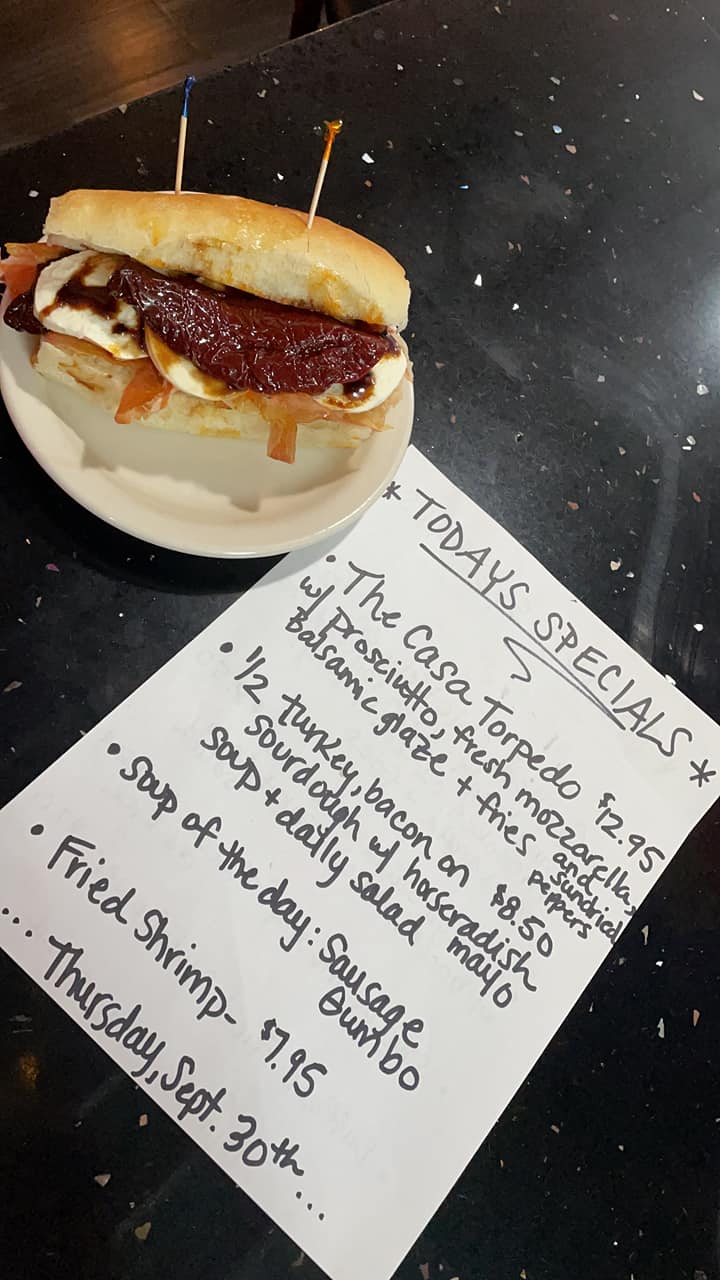 * TODAYS SPECIALS *
• The Casa Torpedo $12.95
w/ Prosciutto, fresh mozzarella,
Balsamic glaze + fries and
sundried
peppers
• 1/2 turkey, bacon on $8.50
sourdough w/ horseradish
soup + daily salad mayo
• soup of the day: Sausage
Gumbo
• Fried Shrimp- $7.95
... Thursday, Sept. 30th...